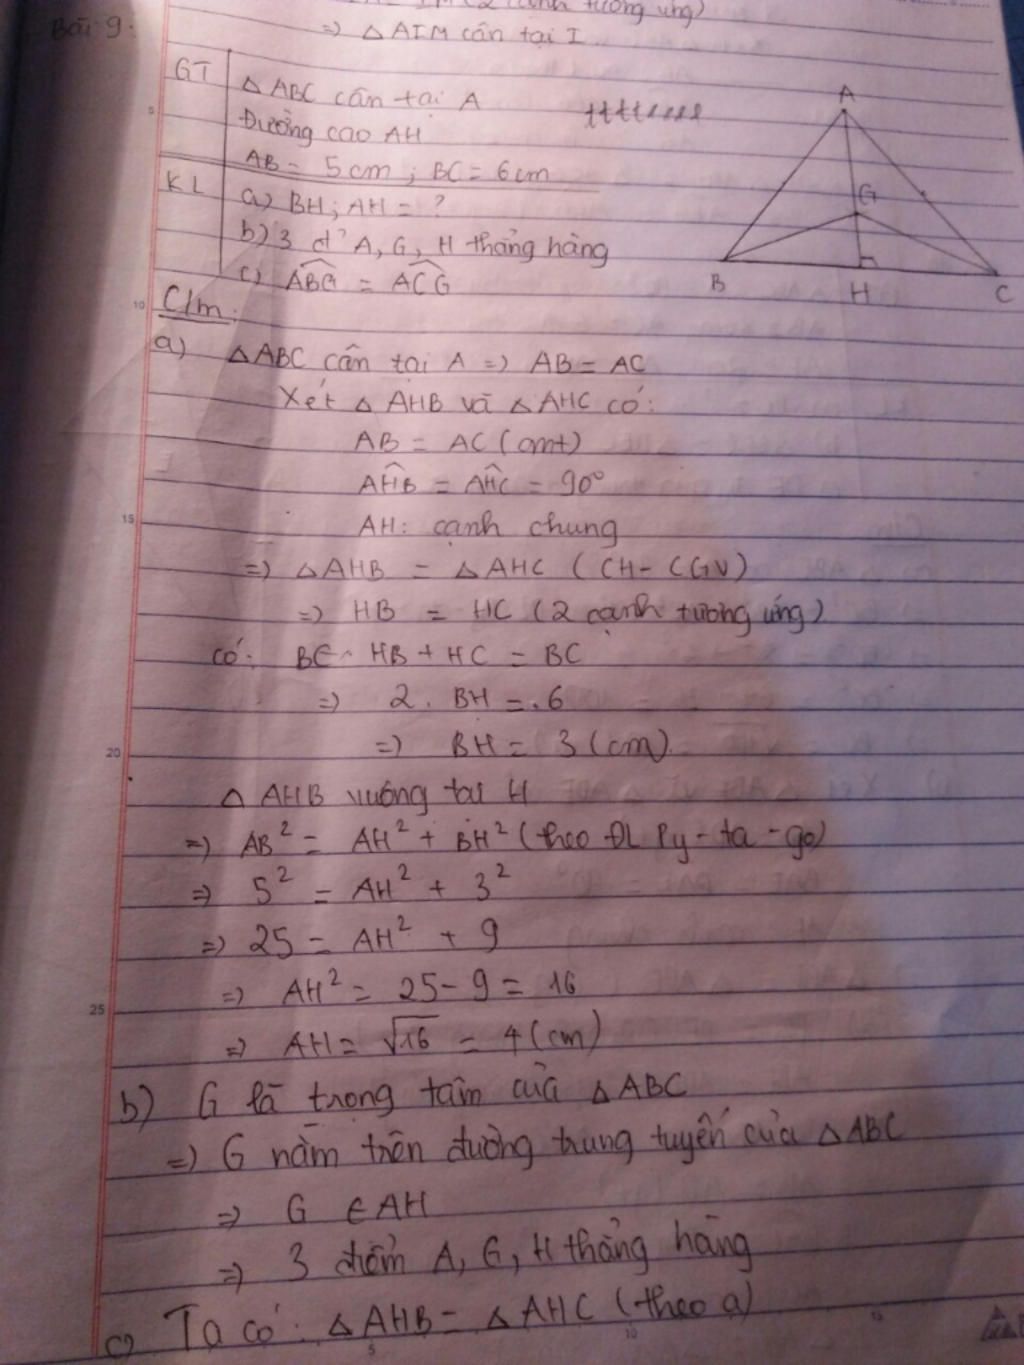 (2 cạnh tương ứng)
Bài 9:
=> △AIM cân tại I
GT
△ABC cân tại A
Đường cao AH
AB = 5cm ; BC = 6cm
KL
a) BH; AH = ?
b) 3 đ' A, G, H thẳng hàng
c) ABG = ACG
A
G
B
H
C
C/m:
a) △ABC cân tại A => AB = AC
Xét △AHB và △AHC có:
AB = AC (cmt)
AHB = AHC = 90°
AH: cạnh chung
=> △AHB = △AHC (CH-CGV)
=> HB = HC (2 cạnh tương ứng)
Có: HB + HC = BC
=> 2. BH = 6
=> BH = 3 (cm)
△AHB vuông tại H
=> AB² = AH² + BH² (theo ĐL Py-ta-go)
=> 5² = AH² + 3²
=> 25 = AH² + 9
=> AH² = 25 - 9 = 16
=> AH = √16 = 4 (cm)
b) G là trọng tâm của △ABC
=> G nằm trên đường trung tuyến của △ABC
=> G ∈ AH
=> 3 điểm A, G, H thẳng hàng
c) Ta có: △AHB = △AHC (theo a)
5
10
15
20
25
5
10
15